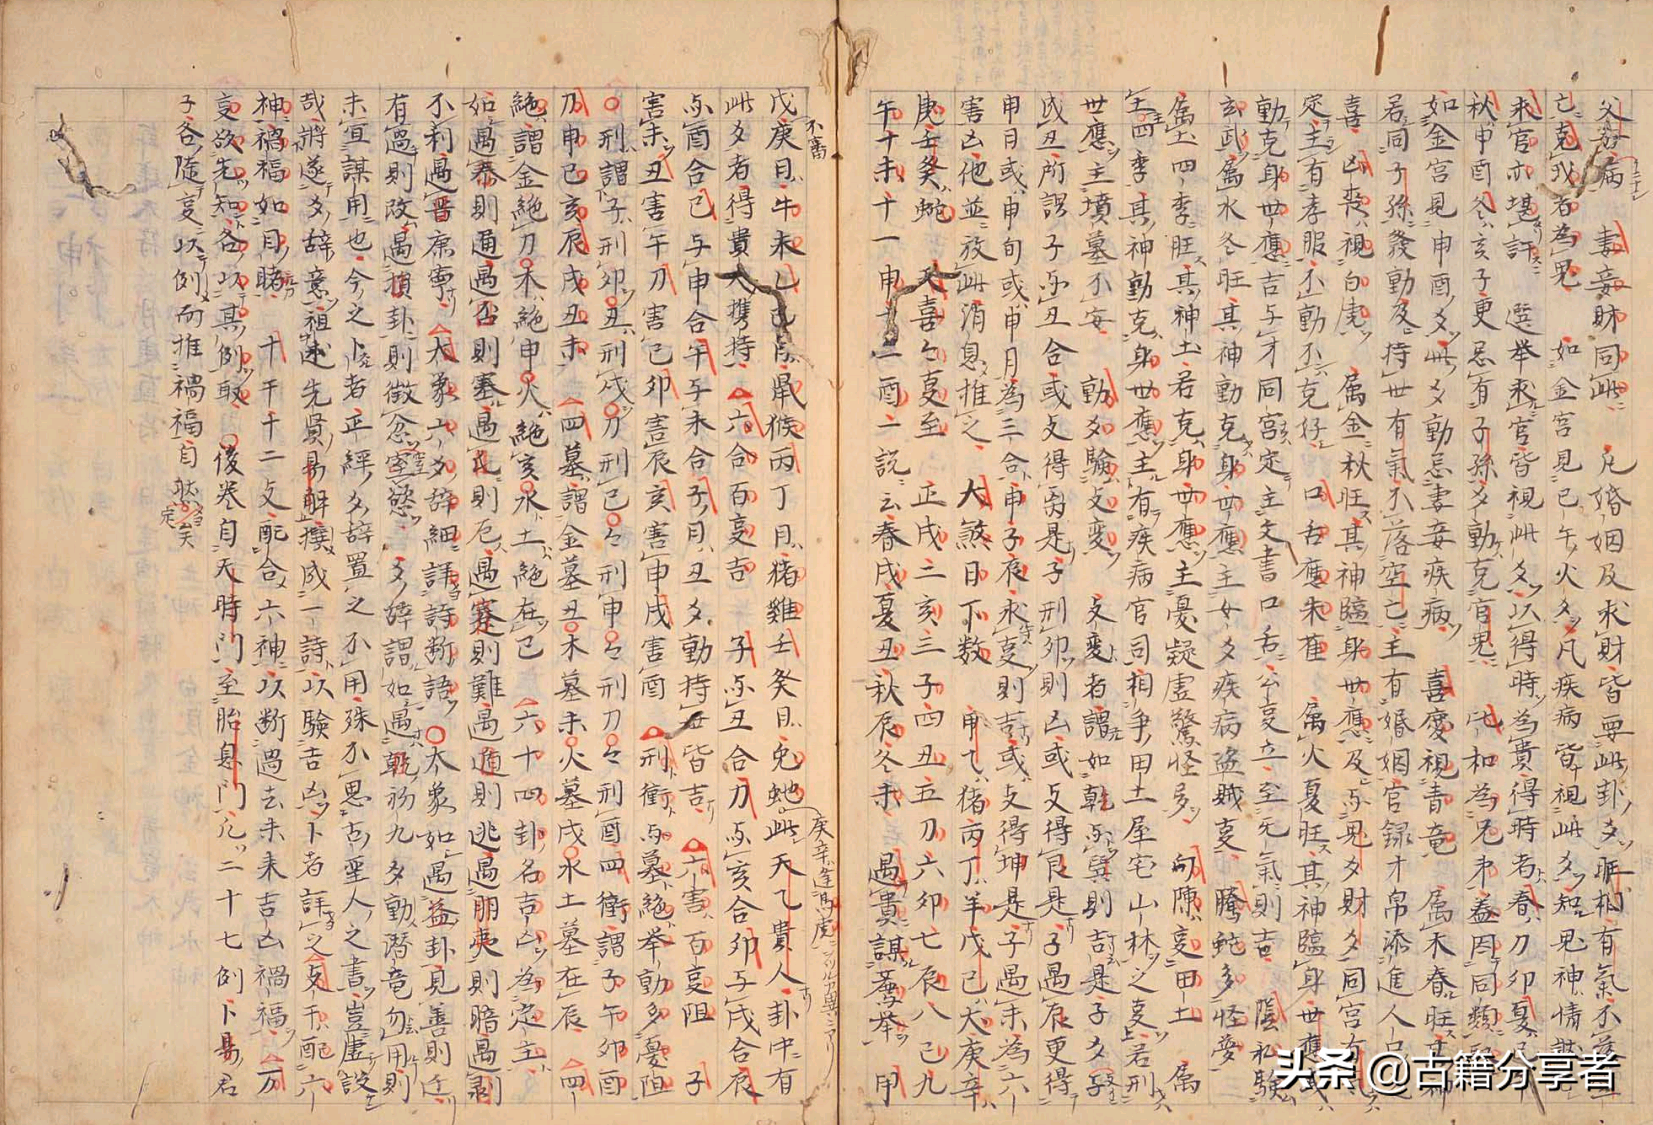 父母病 妻妾財同此 凡婚姻及求財皆要此卦爻旺相有氣不落空
亡克我者為鬼 如金宮見巳午火爻凡疾病皆視此爻知鬼神情狀
求官亦堪詳 選举求官皆視此爻以得時為貴得時者春刀卯夏巳
秋申酉冬亥子更忌有子孫爻動克官鬼 比和為兄弟盖因同類
如金宮見申酉爻此爻動忌妻妾疾病 喜慶視青竜 属木春旺其神
若同子孫發動及持世有氣不落空亡主有婚姻官録才帛添進人口
喜 凶喪視白虎 属金秋旺其神臨身世應及与鬼爻財爻同宮有
定主有孝服不動不克好 口舌應朱雀 属火夏旺其神臨身世應或
動克身世應吉与才同宮定主文書口舌公㕝立至无氣則吉 陰私驗
玄武属水冬旺其神動克身世應主女爻疾病盗賊㕝 騰蛇多怪夢
属土四季旺其神土若克身世應主憂疑虚驚怪夛 勾陳㕝田土 属
土四季其神動克身世應主有疾病官司相争田土屋宅山林之㕝若刑
世應主墳墓不安 動爻驗爻変 爻変者謂如乾变巽則吉是子爻
或丑所謂子与丑合或攴得禹是子刑卯則凶或攴得艮是子遇辰更得
申日或申旬或申月為三合申子辰水㕝則吉或攴得坤是子遇未為六
害凶他並放此消息推之 大煞日下数 甲乙猪丙丁羊戊己犬庚辛
庚壬癸蛇 天喜乞㕝至 正戌二亥三子四丑五刀六卯七辰八巳九
午十未十一申十二酉二説云春戌夏丑秋辰冬未 遇貴謀為举 甲
戊庚日牛未乙己日鼠猴丙丁日猪雞壬癸日兔蛇此天乙貴人卦中有
此爻者得貴人携持 六合百㕝吉 子与丑合刀与亥合卯与戌合辰
与酉合巳与申合午与未合子日丑爻動持世皆吉 六害百㕝阻 子
害未丑害午刀害巳卯害辰亥害申戌害酉 刑衝与墓絶举動多憂阻
刑謂子刑卯丑刑戌刀刑巳巳刑申申刑刀刀刑酉四衝謂子午卯酉
刀申巳亥辰戌丑未 四墓謂金墓丑木墓未火墓戌水土墓在辰 四
絶謂金絶刀木絶申火絶亥水土絶在巳 六十四卦名吉凶為定主
如遇泰則通遇否則塞遇屯則厄遇蹇則難遇遁則逃遇明夷則暗遇剥
不利遇晋康寧 大象六爻辞細詳詩断語 大象如遇益卦見善則迁
有過則改遇損卦則徵忿窒慾 爻辞謂如遇乾初九爻動潜竜勿用則
未宜謀用也今之卜者正繇爻辞置之不用殊不思古聖人之書豈虚設
哉將遂爻辞意祖述先賢易解撰成一詩以驗吉凶卜者詳之攴干配六
神禍福如目睹 十干十二攴配合六神以断過去未来吉凶禍福 万
㕝欲先知各以其例取 後巻自天時門至胎息門凡二十七例卜易君
子各隨㕝以例而推禍福自然矣
不審
庚辛逢馬虎